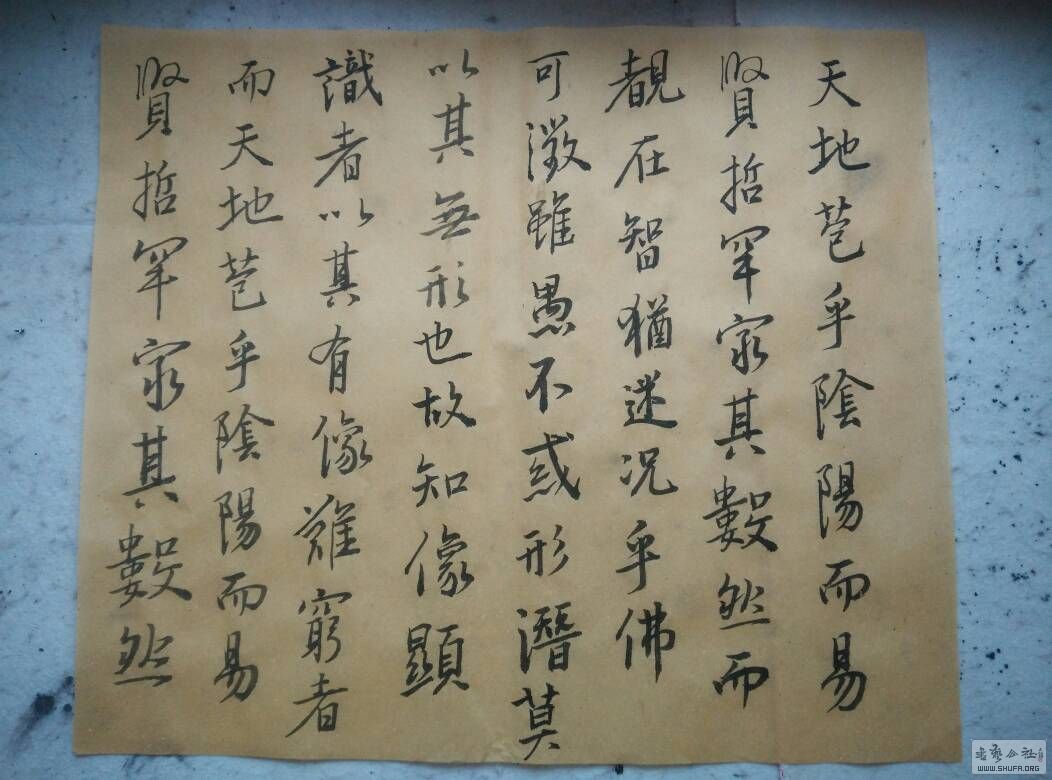 天地苞乎陰陽而易
賢哲罕窮其數然而
覩在智猶迷况乎佛
可徵雖愚不惑形潛莫
以其無形也故知像顯
識者以其有像難窮者
而天地苞乎陰陽而易
賢哲罕窮其數然
书艺公社
WWW.SHUFA.ORG